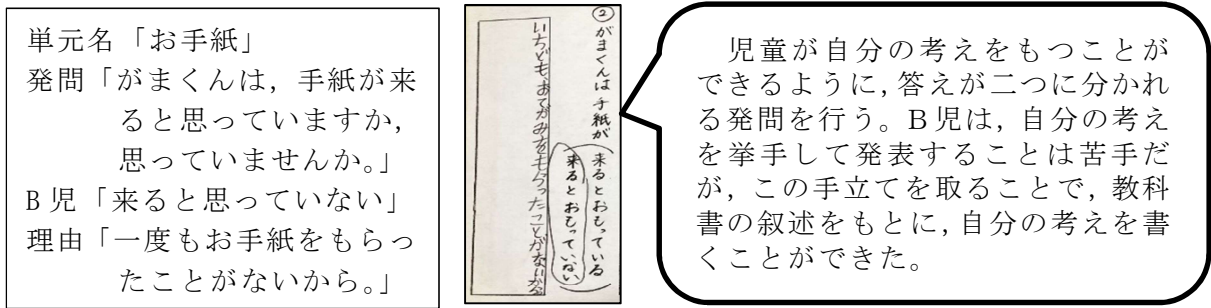 単元名「お手紙」
発問「がまくんは，手紙が来
ると思っていますか，
思っていませんか。」
B児「来ると思っていない」
理由「一度もお手紙をもらっ
たことがないから。」
②
がまくんは手紙が
来るとおもっている
来るとおもっていない
いちども、おてがみをもらったことがないから
児童が自分の考えをもつことが
できるように，答えが二つに分かれ
る発問を行う。B児は，自分の考え
を挙手して発表することは苦手だ
が，この手立てを取ることで，教科
書の叙述をもとに，自分の考えを書
くことができた。